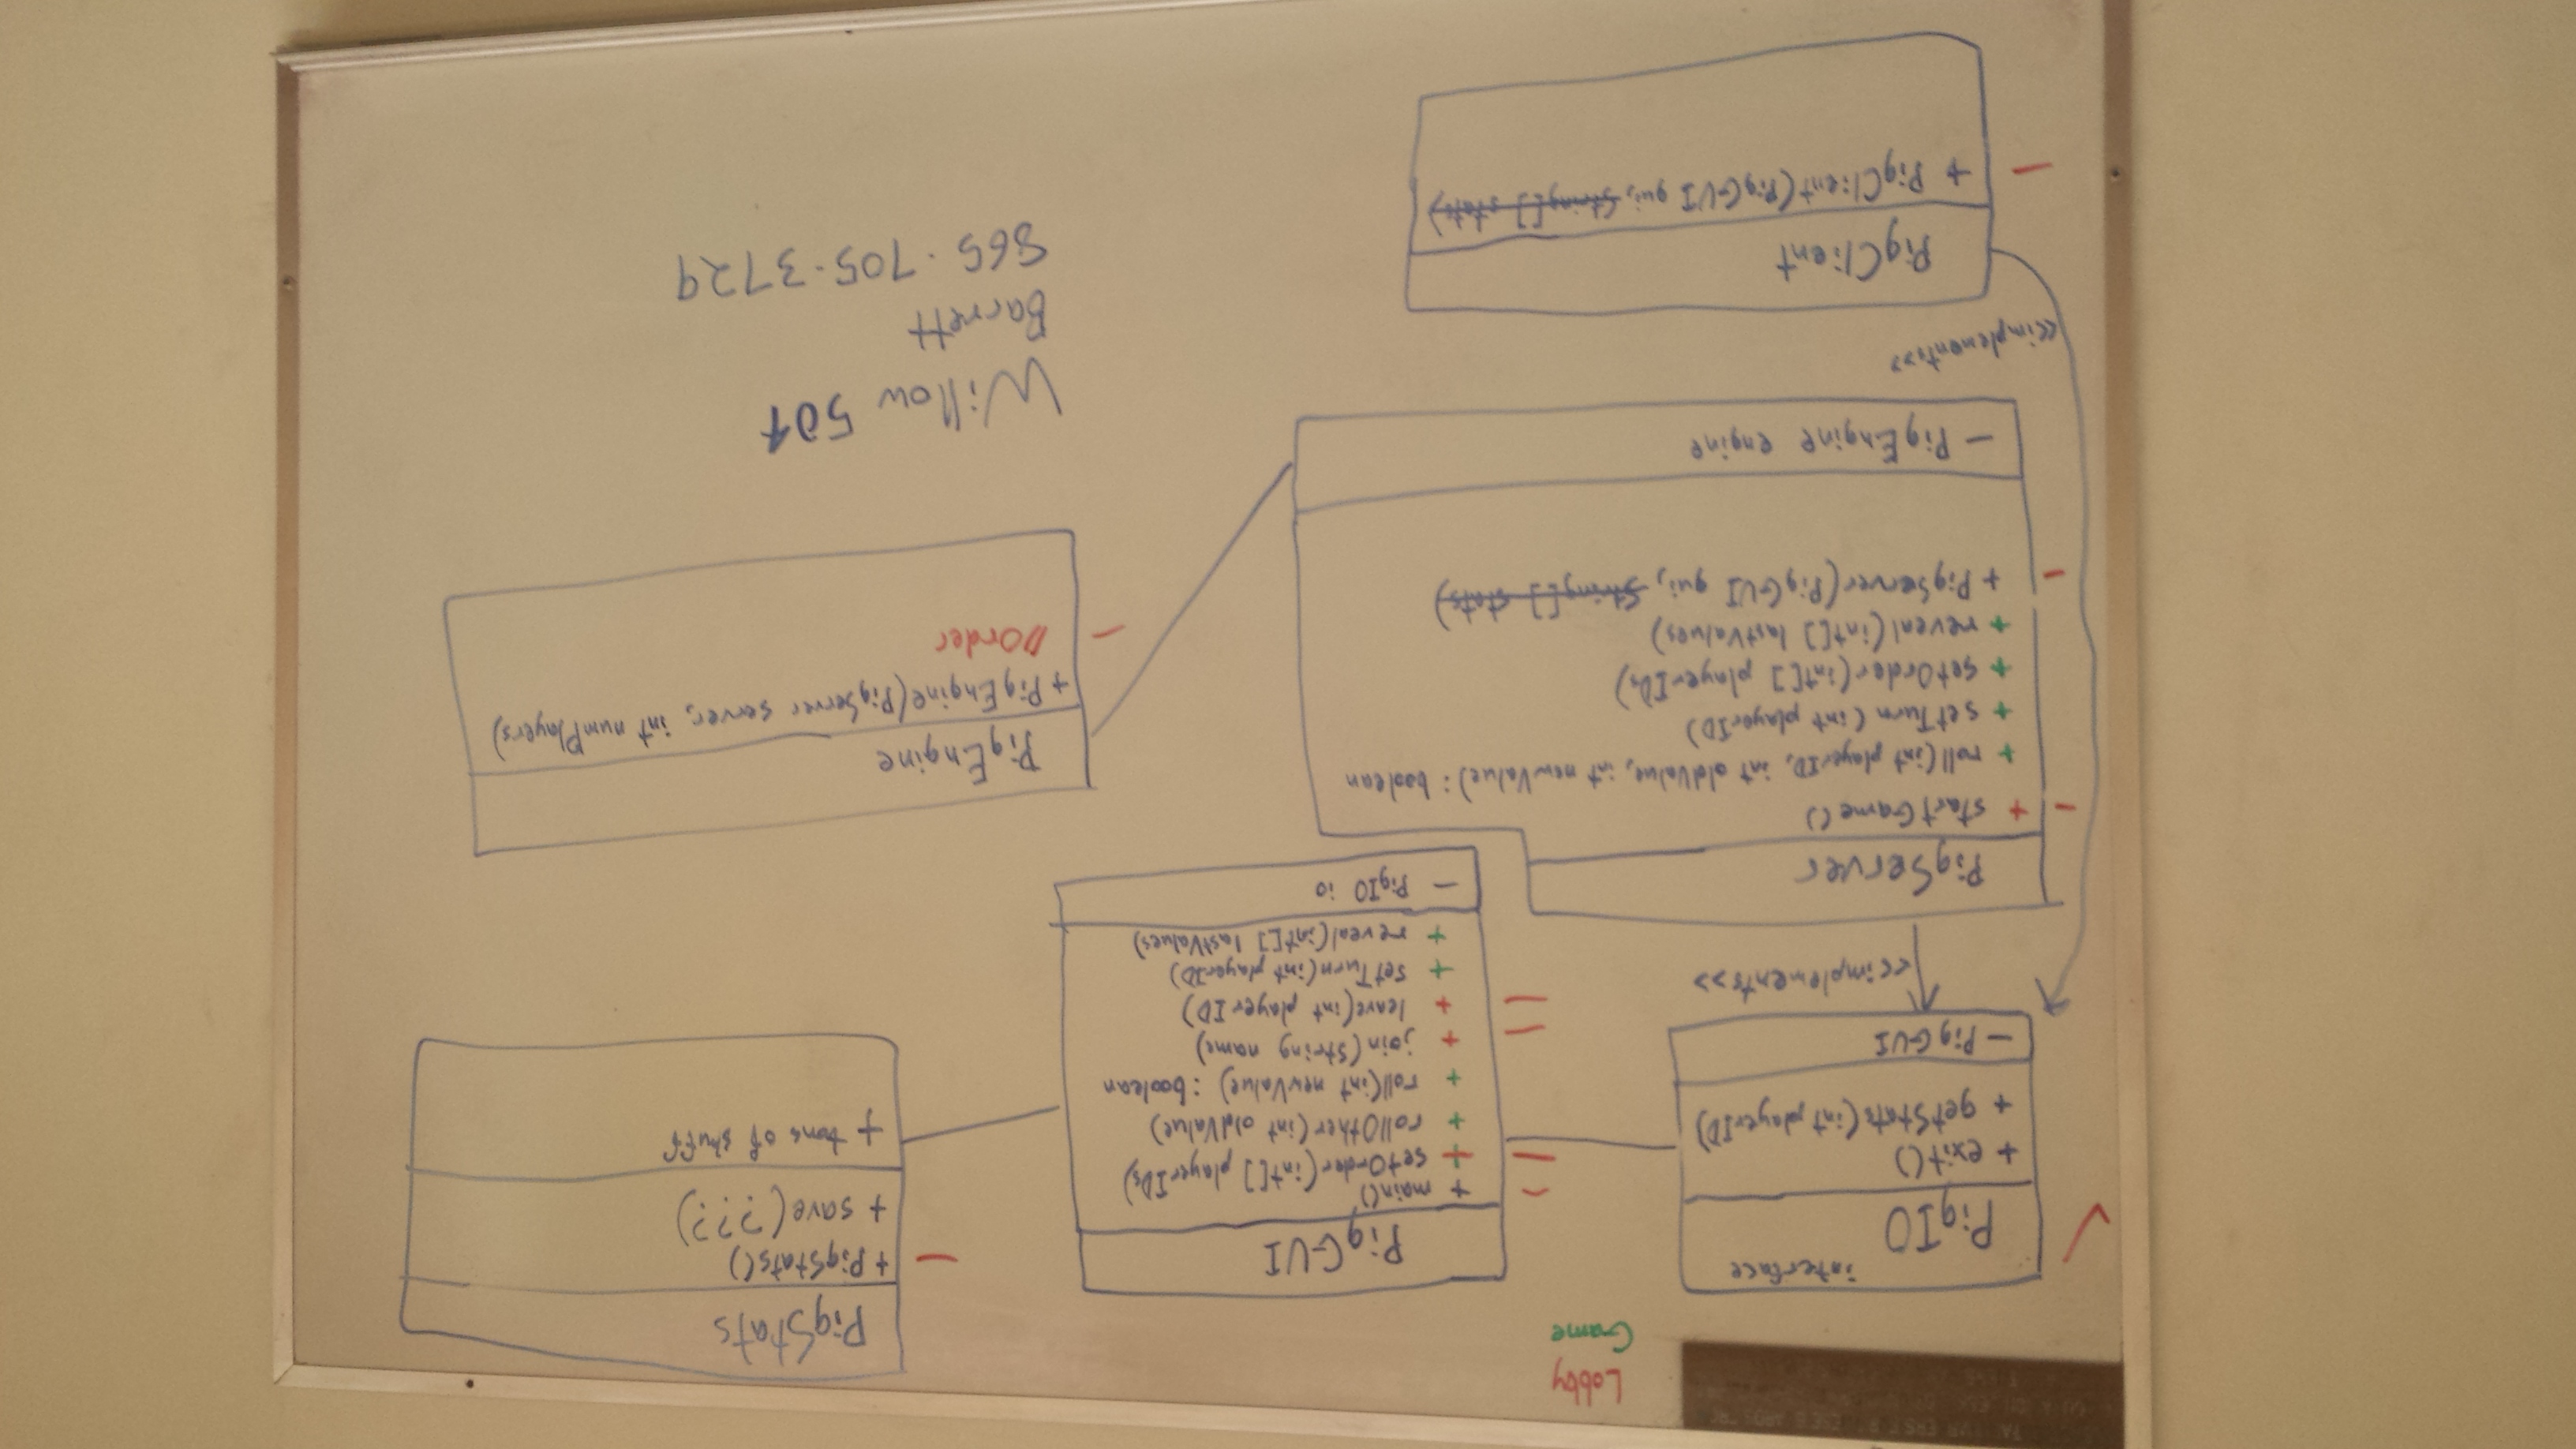 Lobby
Game
interface
PigIO
+ exit()
+ getStats(int playerID)
- PigGUI
<<implements>>
PigGUI
+ main()
+ setOrder(int[] playerIDs)
+ rollOther(int oldValue)
+ roll(int newValue) : boolean
+ join(String name)
+ leave(int playerID)
+ setTurn(int playerID)
+ reveal(int[] lastValues)
- PigIO io
PigStats
+ PigStats()
+ save(???)
+ tons of stuff
PigServer
+ startGame()
+ roll(int playerID, int oldValue, int newValue) : boolean
+ setTurn(int playerID)
+ setOrder(int[] playerIDs)
+ reveal(int[] lastValues)
+ PigServer(PigGUI gui, String[] stats)
- PigEngine engine
PigEngine
+ PigEngine(PigServer server, int numPlayers)
//Order
<<implements>>
PigClient
+ PigClient(PigGUI gui, String[] stats)
Willow 504
Barrett
865.705.3729